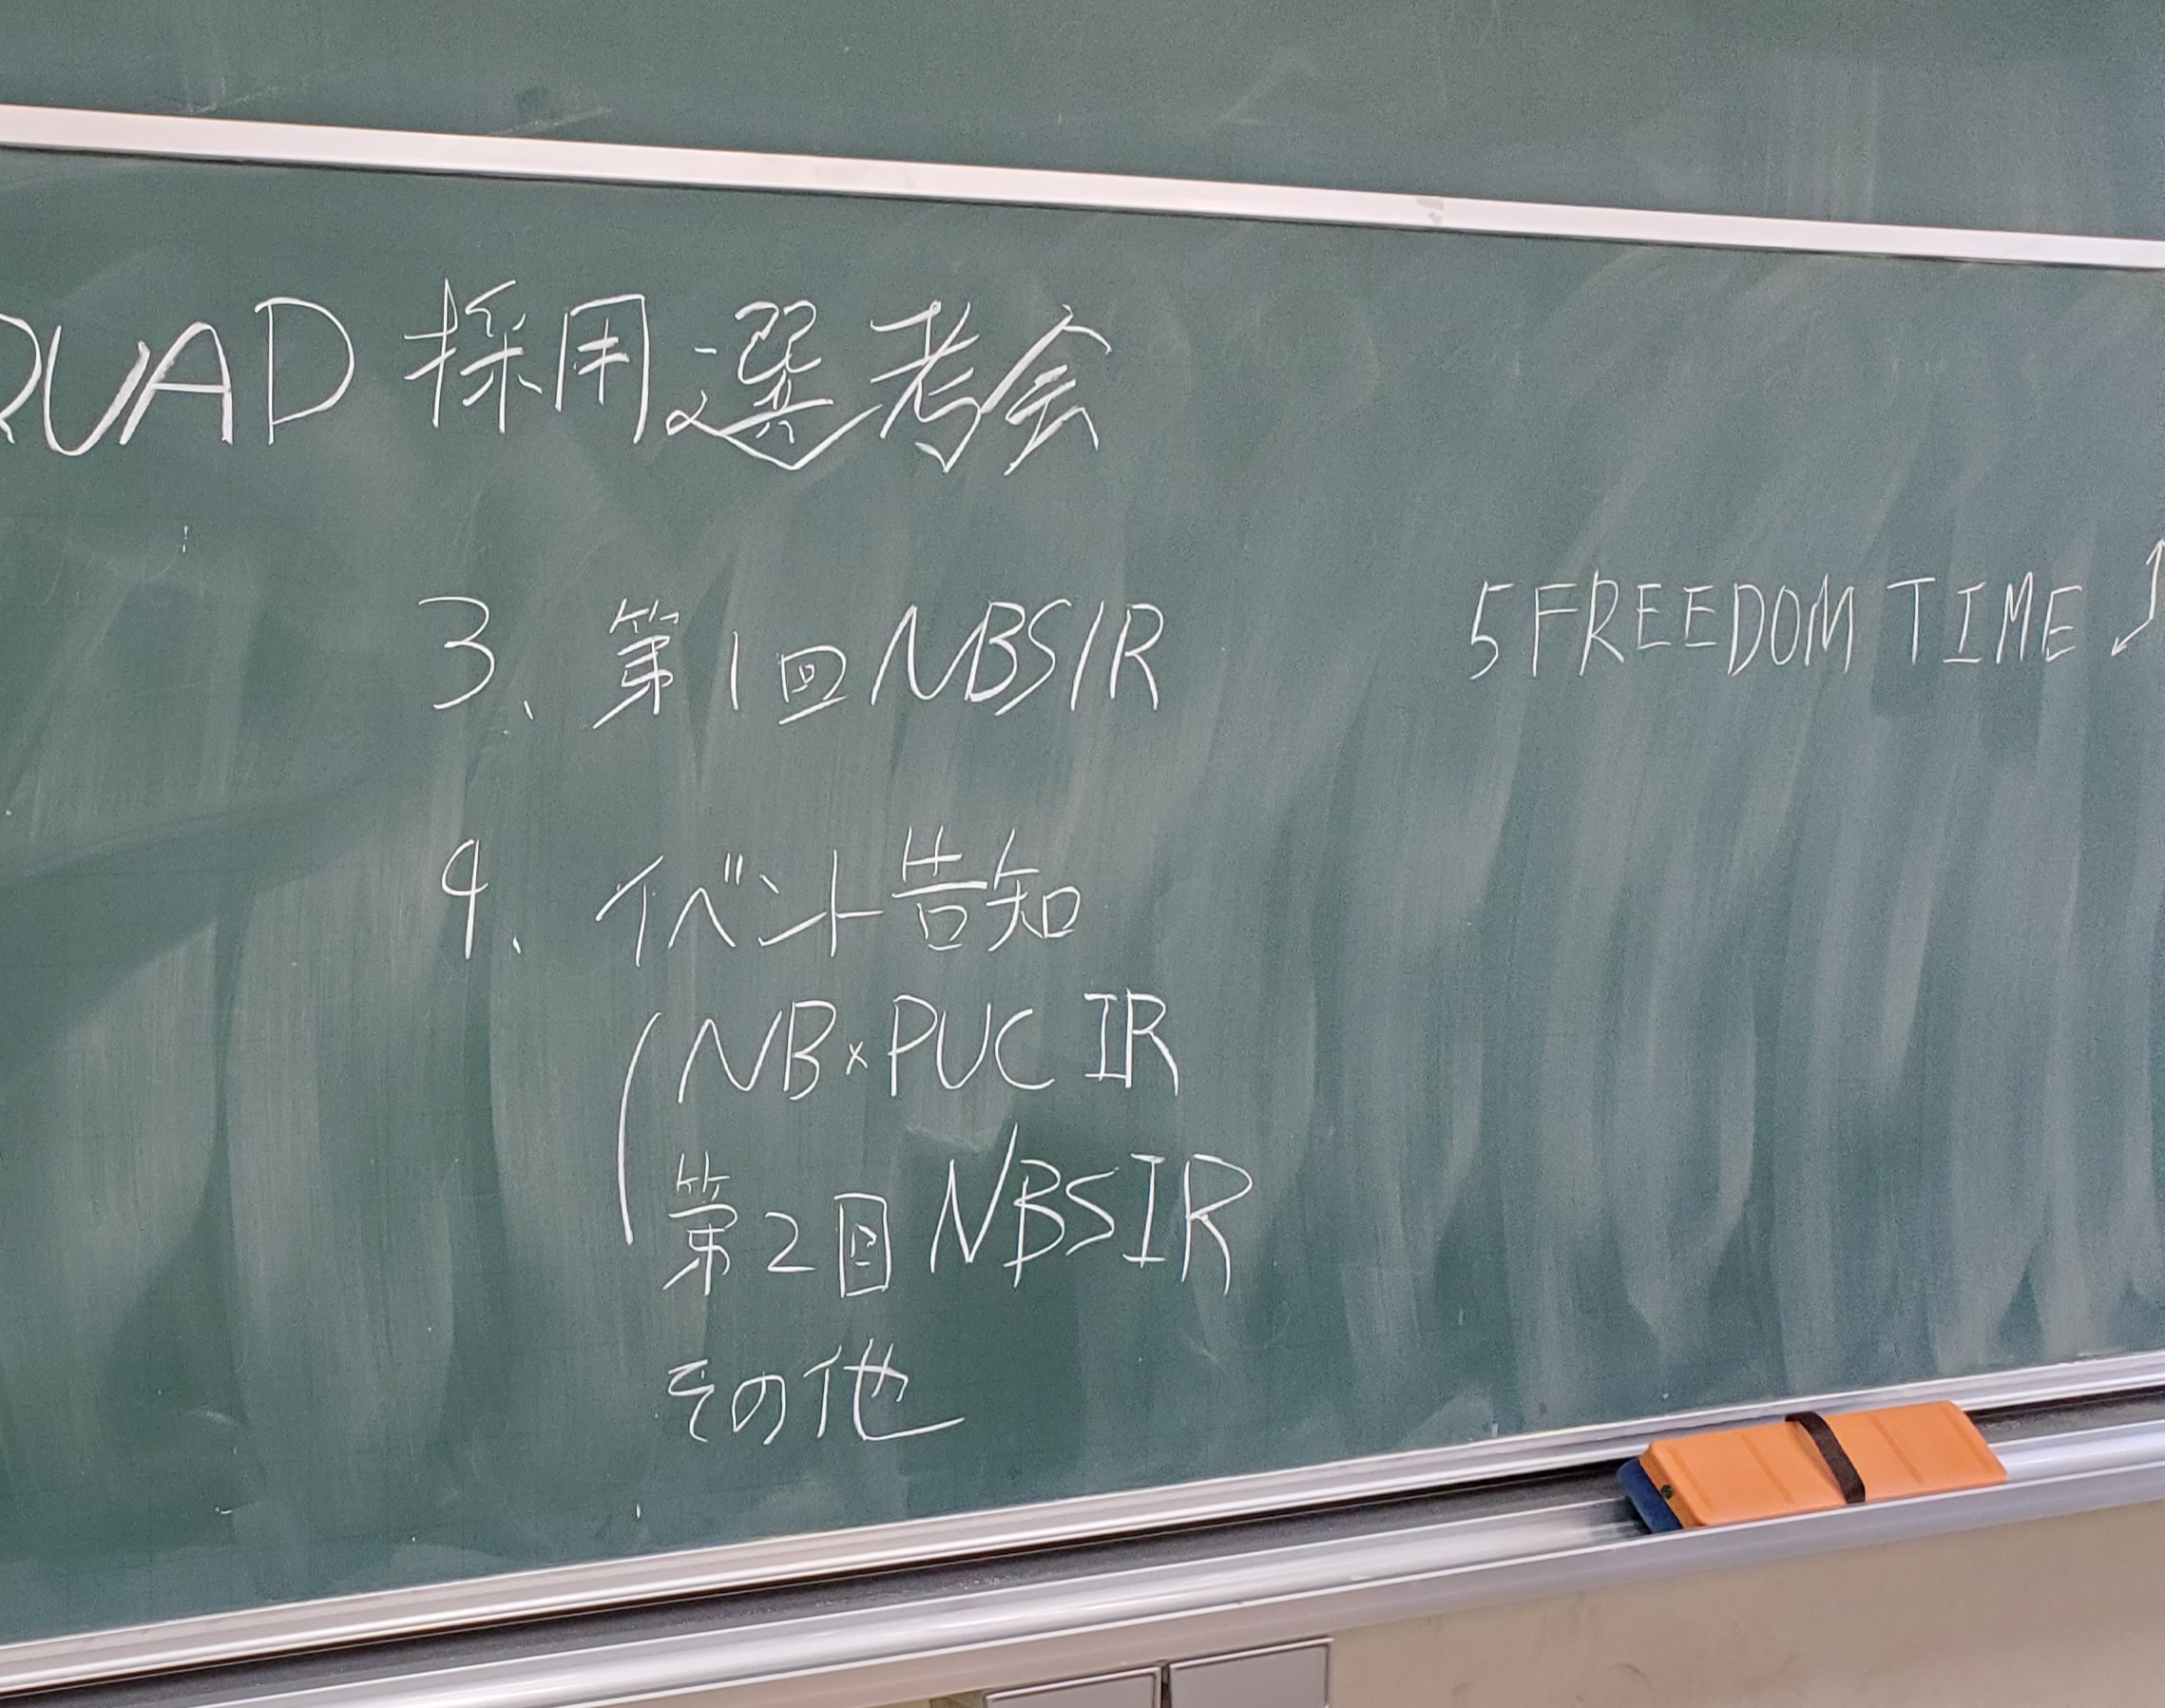 QUAD 採用選考会
3、第1回NBSIR
4、イベント告知
NB×PUC IR
第2回NBSIR
その他
5 FREEDOM TIME